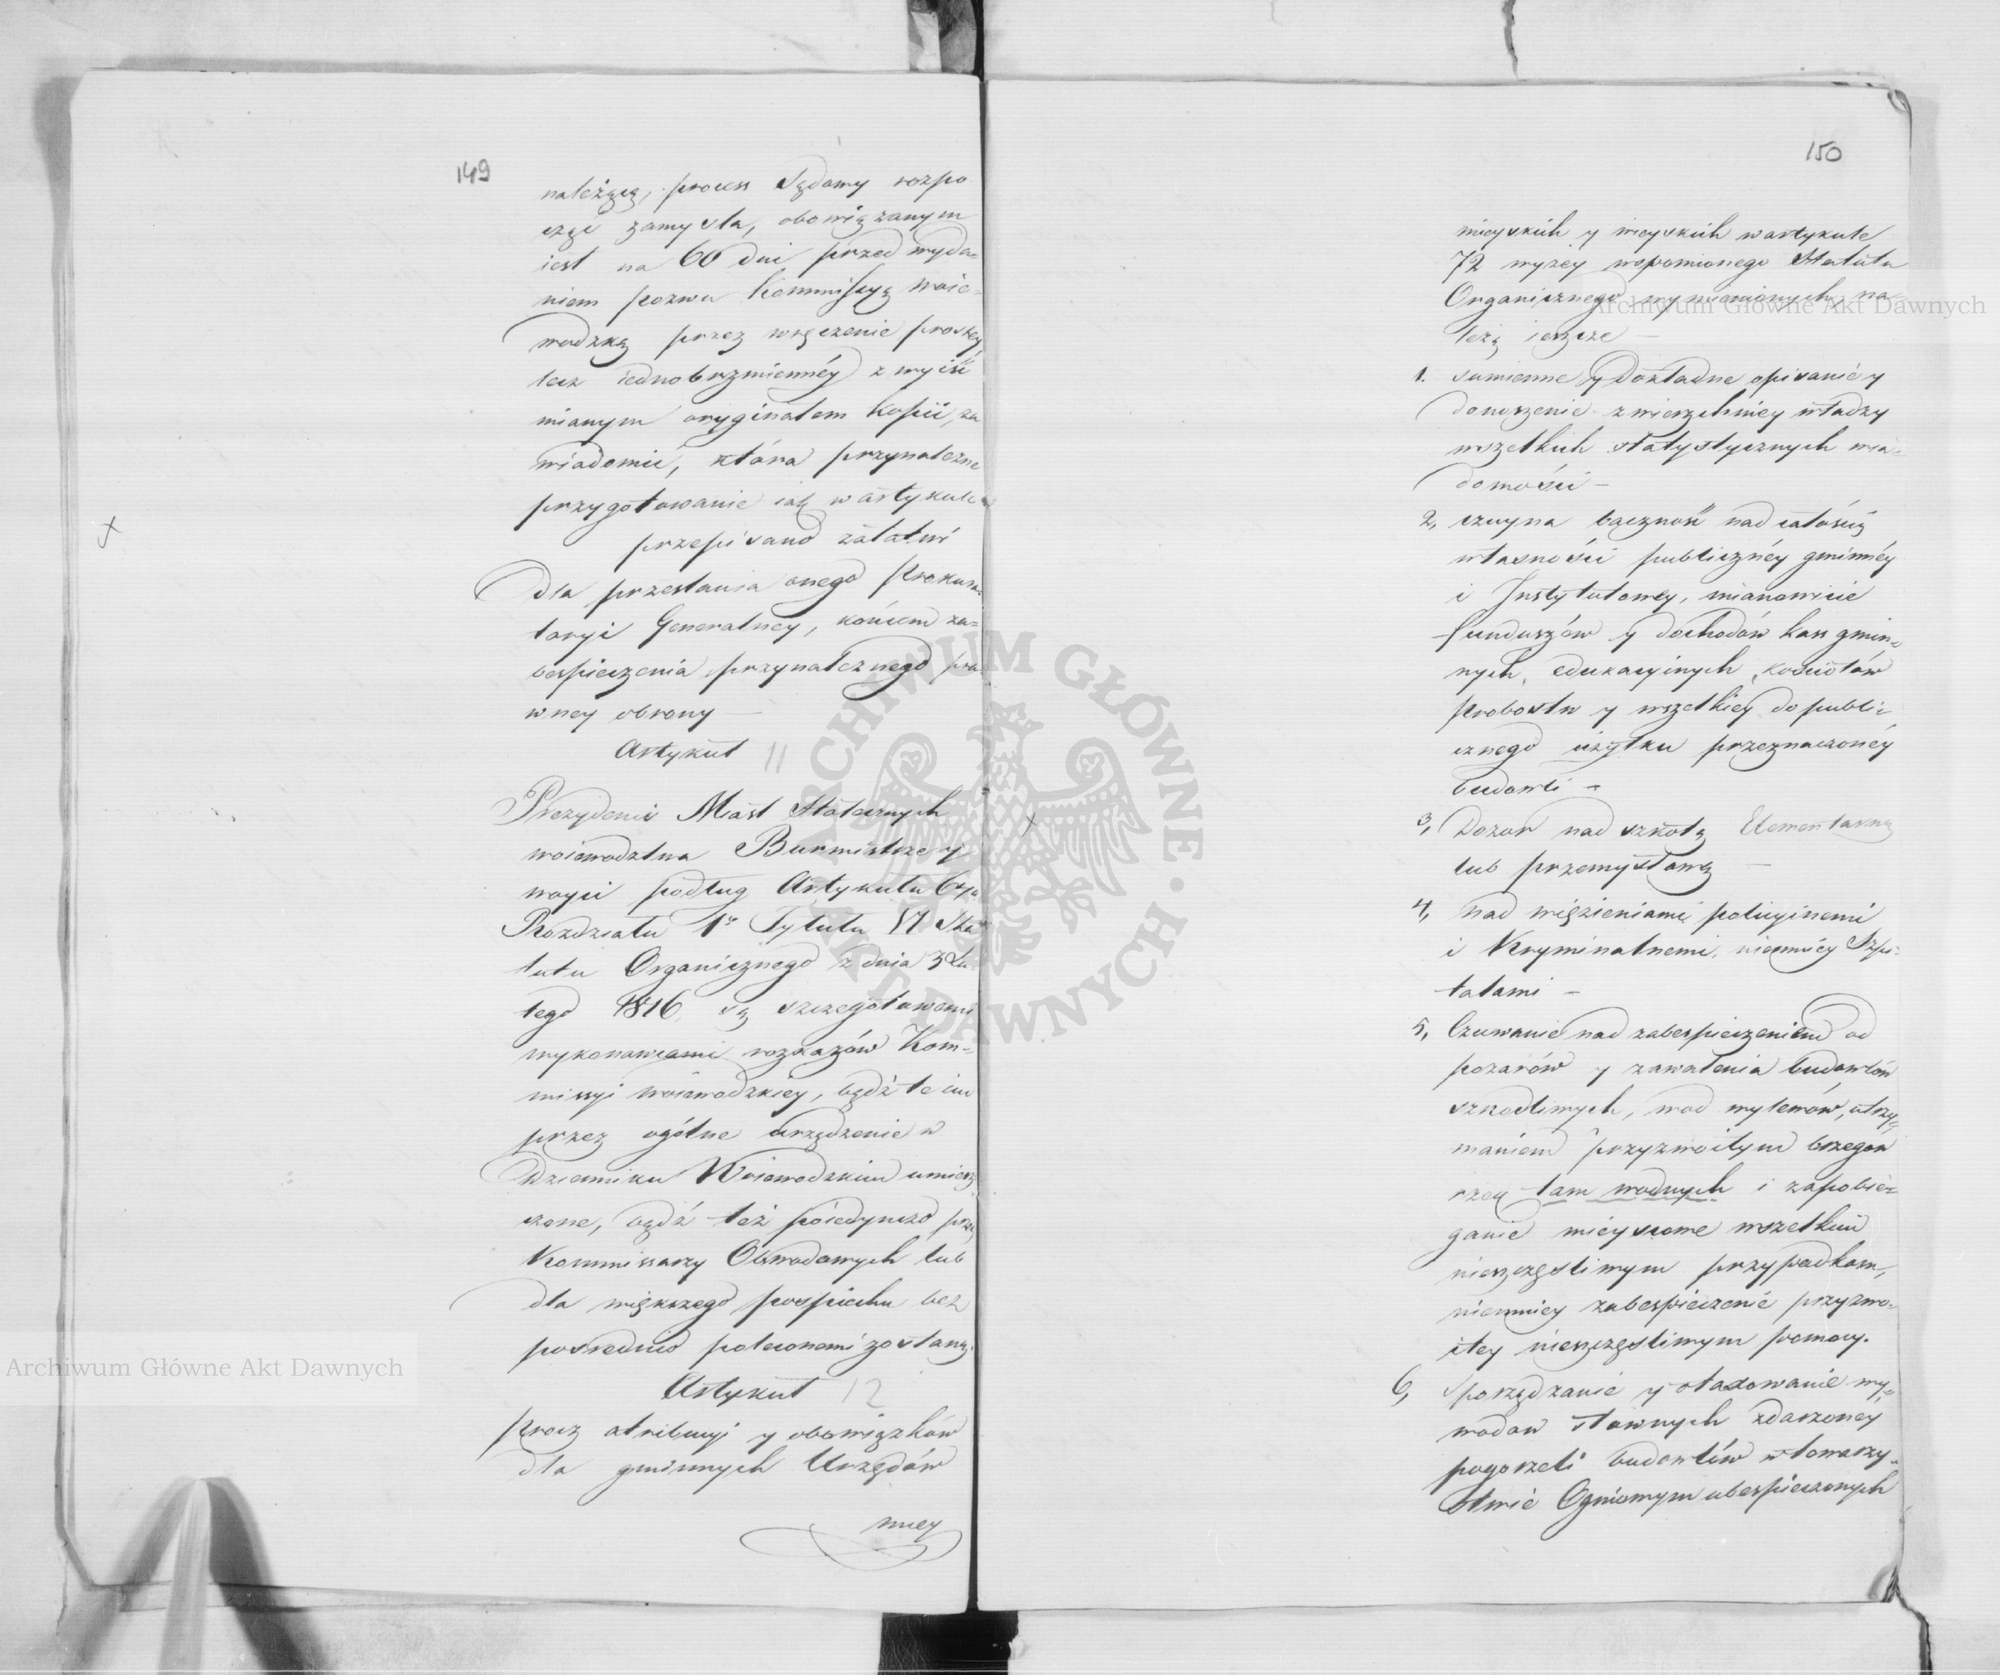 149
należącą, process Sądowy rozpo
cząć zamyśla, obowiązanym
iest na 60 dni przed wyda-
niem pozwu Kommissyą Woie-
wodzką przez wręczenie prostey
lecz iednobrzmiennéy z wyiść
mianym oryginałem kopii, za
wiadomić, która przynależne
przygotowanie iak w artykule
przepisano załatwi
dla przesłania onego Prokura-
toryi Generalney, końcem za-
bespieczenia przynależnego pra
wney obrony —
Artykuł 11
Prezydenci Miast Stołecznych
woiewodztwa Burmistrze y
woyci podług Artykułu 6go
Rozdziału 1o Tytułu VI Sta
tutu Organicznego z dnia 3 Lu-
tego 1816 są szczegółowemi
wykonawcami rozkazów Kom-
missyi Woiewodzkiey, bądź te im
przez ogólne urządzenie w
Dzienniku Woiewodzkim umiesz
czone, bądź też poiedynczo przez
Kommissarzy Obwodowych lub
dla większego pospiechu bez
posrednio poleconemi zostaną.
Artykuł 12
Procz atribucyi y obowiązków
dla gminnych Urzędów
miey
150
mieyskich y wieyskich w artykule
72 wyżey wspomionego Statutu
Organicznego wymienionych na
leżą ieszcze —
1. sumienne y dokładne opisanie y
donoszenie zwierzchniey władzy
wszelkich statystycznych wia-
domości —
2, czuyna baczność nad całością
własności publicznéy gminnéy
i Instytutowey, mianowicie
funduszów y dochodów kass gmin-
nych, edukacyinych, kościołów
Probostw y wszelkiey do publi-
cznego użytku przeznaczonéy
budowli —
3, Dozor nad szkołą Elementarną
lub przemysłową —
4, nad więzieniami policyinemi
i Kryminalnemi, niemniey Szpi-
talami —
5, Czuwanie nad zabespieczeniem od
pożarów y zawalenia budowlów
szkodliwych, wod wylewów, utrzy-
maniem przyzwoitym brzegów
rzek tam wodnych i zapobie-
ganie mieyscowe wszelkim
nieszczęśliwym przypadkom,
niemniey zabespieczenie przyzwo-
itey nieszczęśliwym pomocy.
6, sporządzanie y stosowanie wy-
wodów słownych zdarzoney
pogorzeli budowlów w towarzy-
stwie Ogniowym ubespieczonych